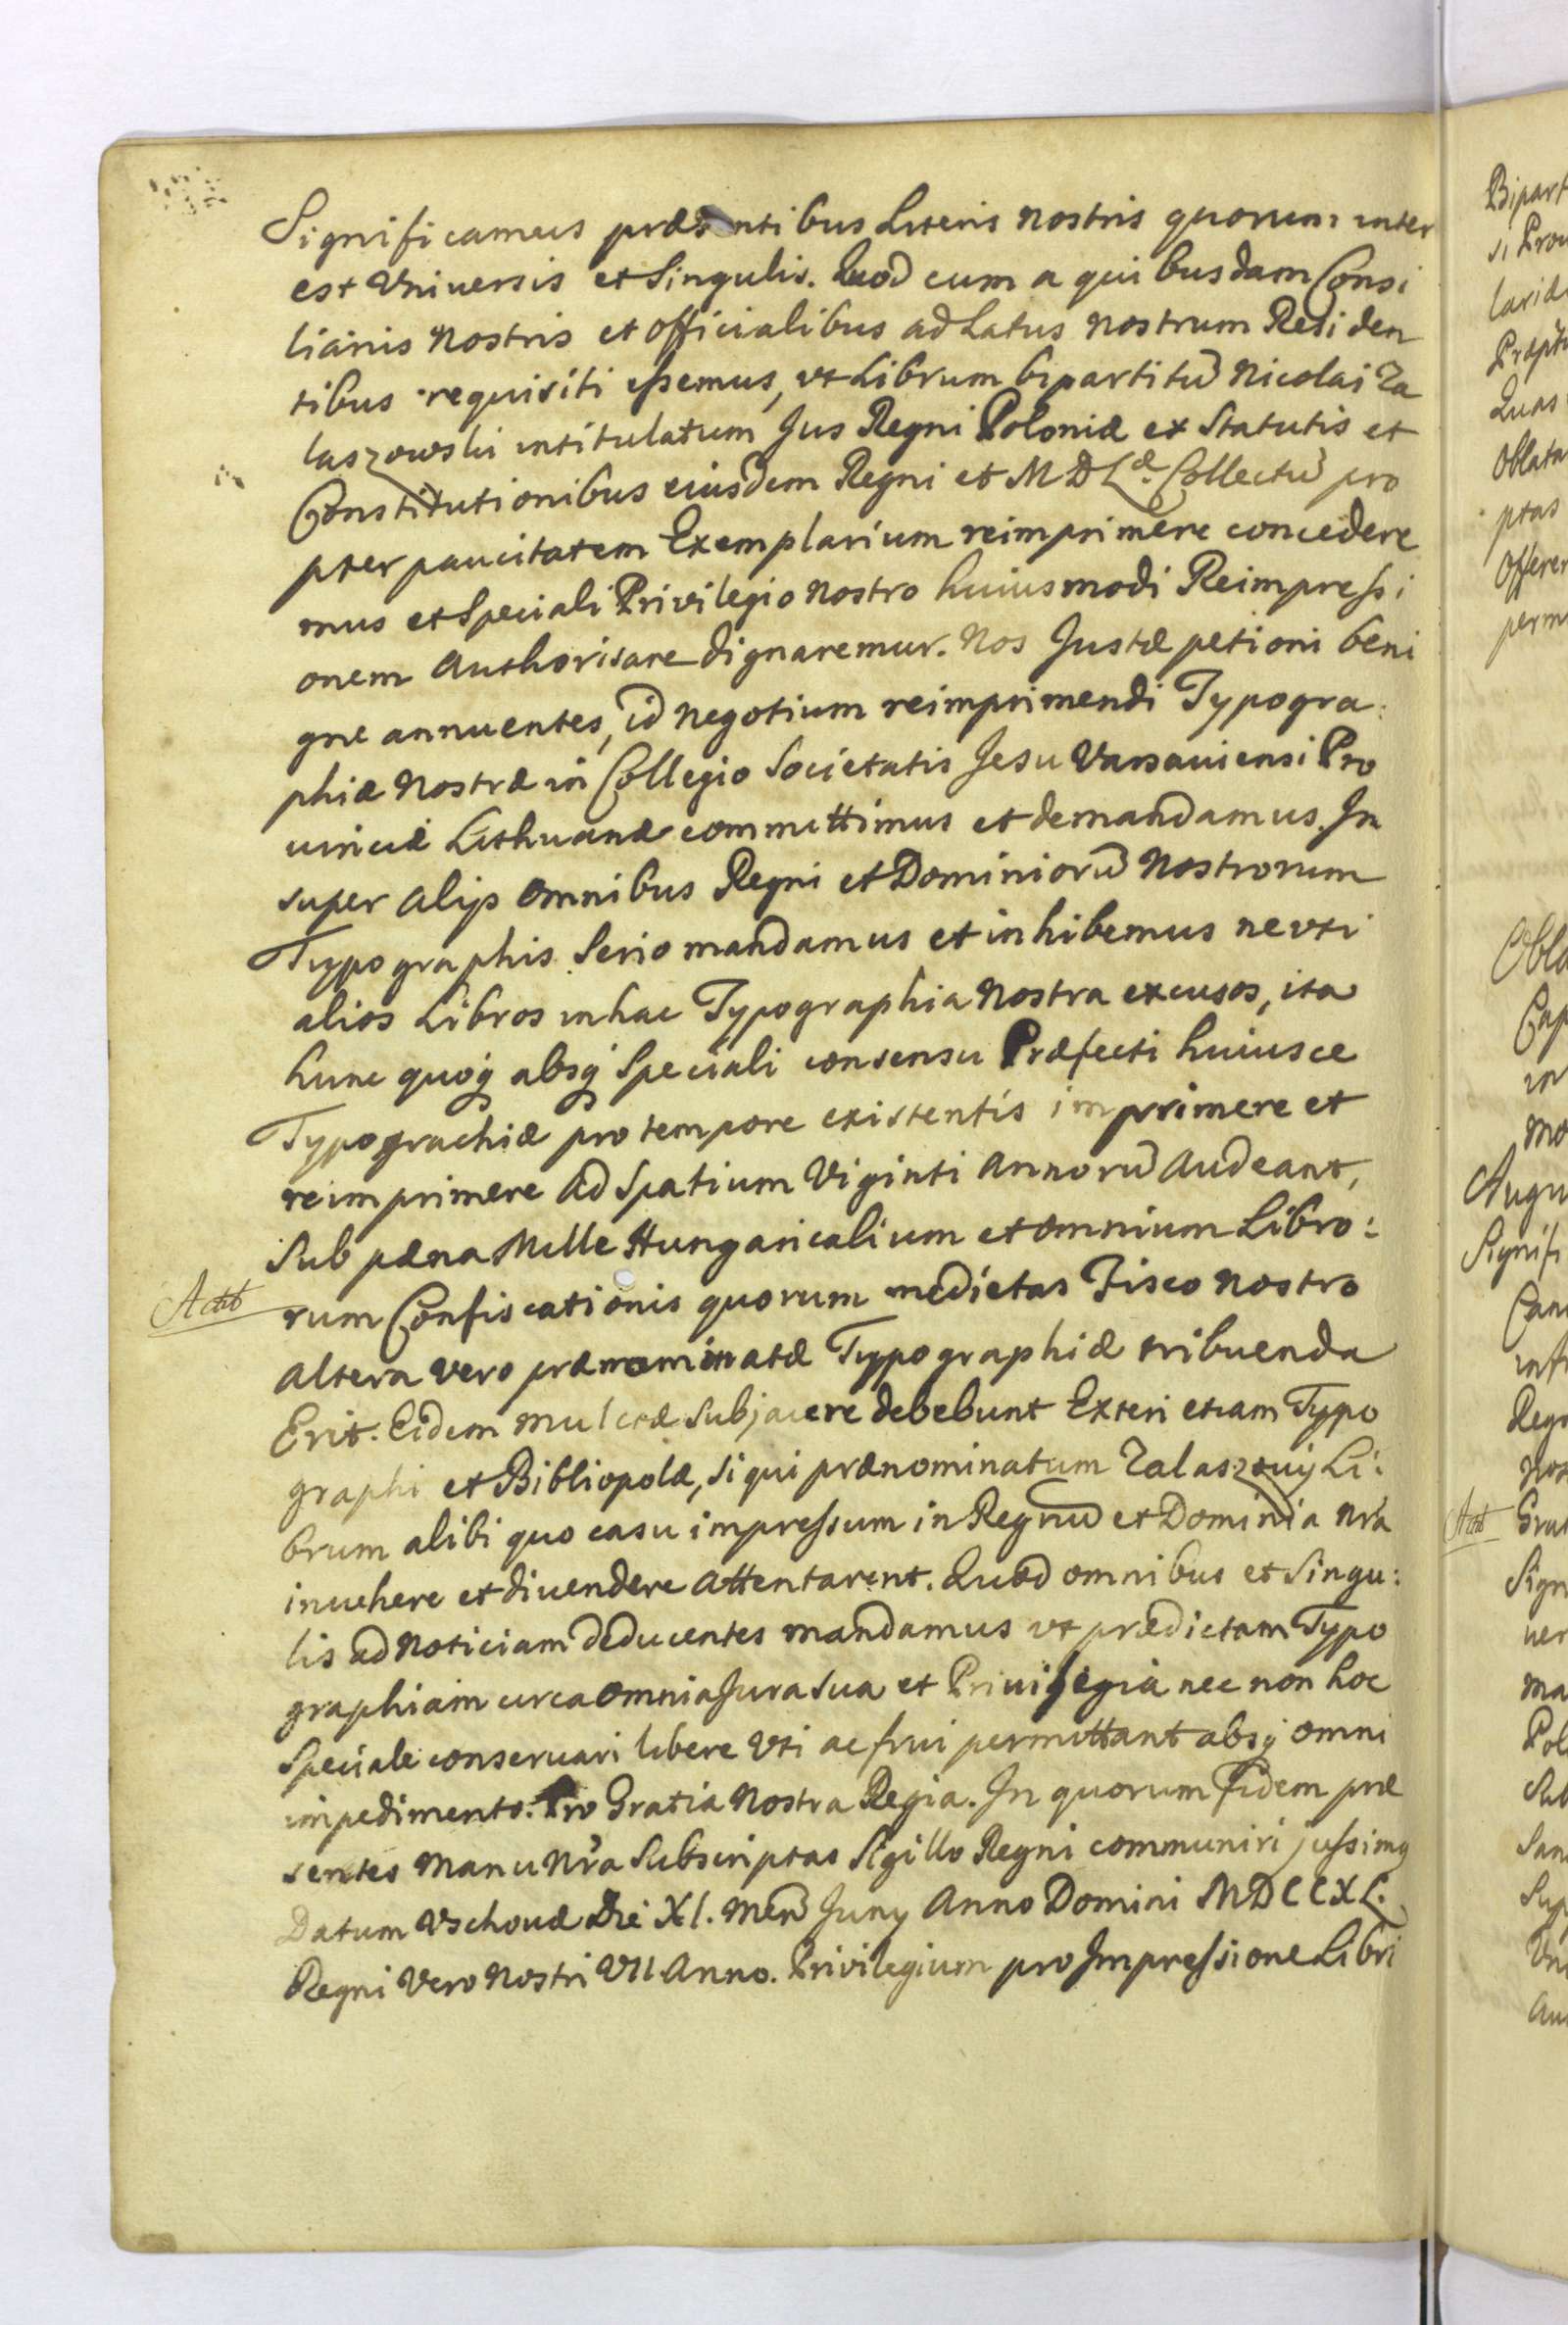 Significamus præsentibus Literis nostris quorum inter
est Vniuersis et Singulis. Quod cum a quibusdam Consi
liariis nostris et officialibus ad Latus nostrum Residen
tibus requisiti essemus, vt Librum bipartitū Nicolai Za
laszowski intitulatum Jus Regni Poloniæ ex Statutis et
Constitutionibus eiusdem Regni et M D L<sup>æ</sup>. Collectū pro
pter paucitatem Exemplarium reimprimere concedere
mus et Speciali Privilegio nostro huiusmodi Reimpressi
onem Authorisare dignaremur. Nos Justæ petioni beni
gne annuentes, id negotium reimprimendi Typogra:
phiæ nostræ in Collegio Societatis Jesu Varsauiensi Pro
uinciæ Lithuanæ committimus et demandamus. In
super alijs omnibus Regni et Dominiorū nostrorum
Typographis Serio mandamus et inhibemus ne vti
alios Libros in hac Typographia nostra excusos, ita
hunc quoq absq Speciali consensu Præfecti huiusce
Typograchiæ pro tempore existentis imprimere et
reimprimere ad Spatium Viginti Annorū Audeant,
Sub pæna Mille Hungaricalium et omnium Libro:
rum Confiscationis quorum medietas Fisco nostro
altera vero prænominatæ Typographiæ tribuenda
Erit. Eidem mulctæ Subjacere debebunt Exteri etiam Typo
graphi et Bibliopolæ, si qui prænominatum Zalaszouij Li:
brum alibi quo casu impressum in Regnū et Dominia nr̃a
inuehere et diuendere attentarent. Quod omnibus et Singu:
lis ad noticiam deducentes mandamus vt prædictam Typo
graphiam circa omnia Jura sua et Priuilegia nec non hoc
Speciale conseruari libere Vti ac frui permittant absq omni
impedimento. Pro Gratia nostra Regia. In quorum fidem præ
sentes manu nr̃a Subscriptas Sigillo Regni communiri jussimq
Datum Vschouæ Die XI. Men̄ Juny Anno Domini MDCCXL.
Regni Vero nostri VII Anno. Privilegium pro Impressione Libri